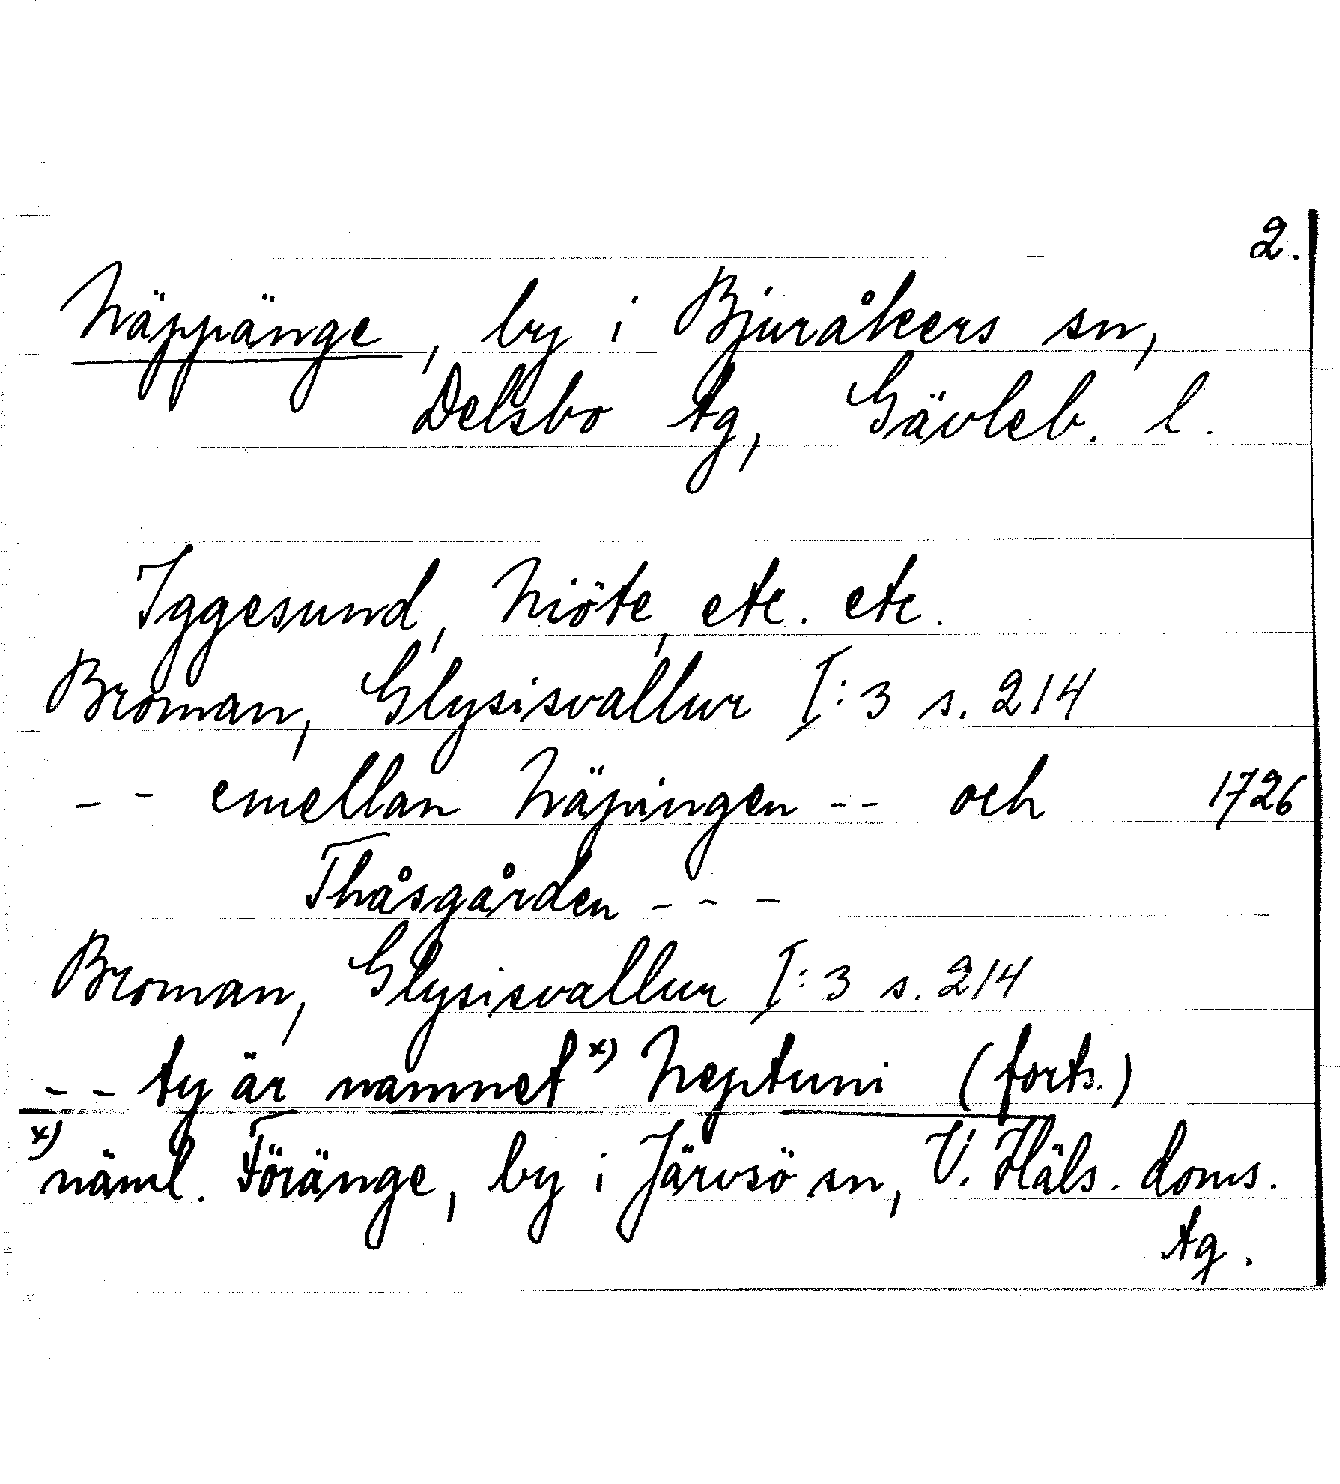 2.
Näppänge, by i Bjuråkers sn,
Delsbo tg, Gävleb. l.
Iggesund, Niöte, etc. etc.
Broman, Glysisvallur I:3 s. 214
- - emellan Näpingen -- och 1726
Thåsgården - - -
Broman, Glysisvallur I:3 s. 214
- - ty är namnet x) Neptuni (forts.)
x) näml. Föränge, by i Järvsö sn, V. Häls. doms.
tg.